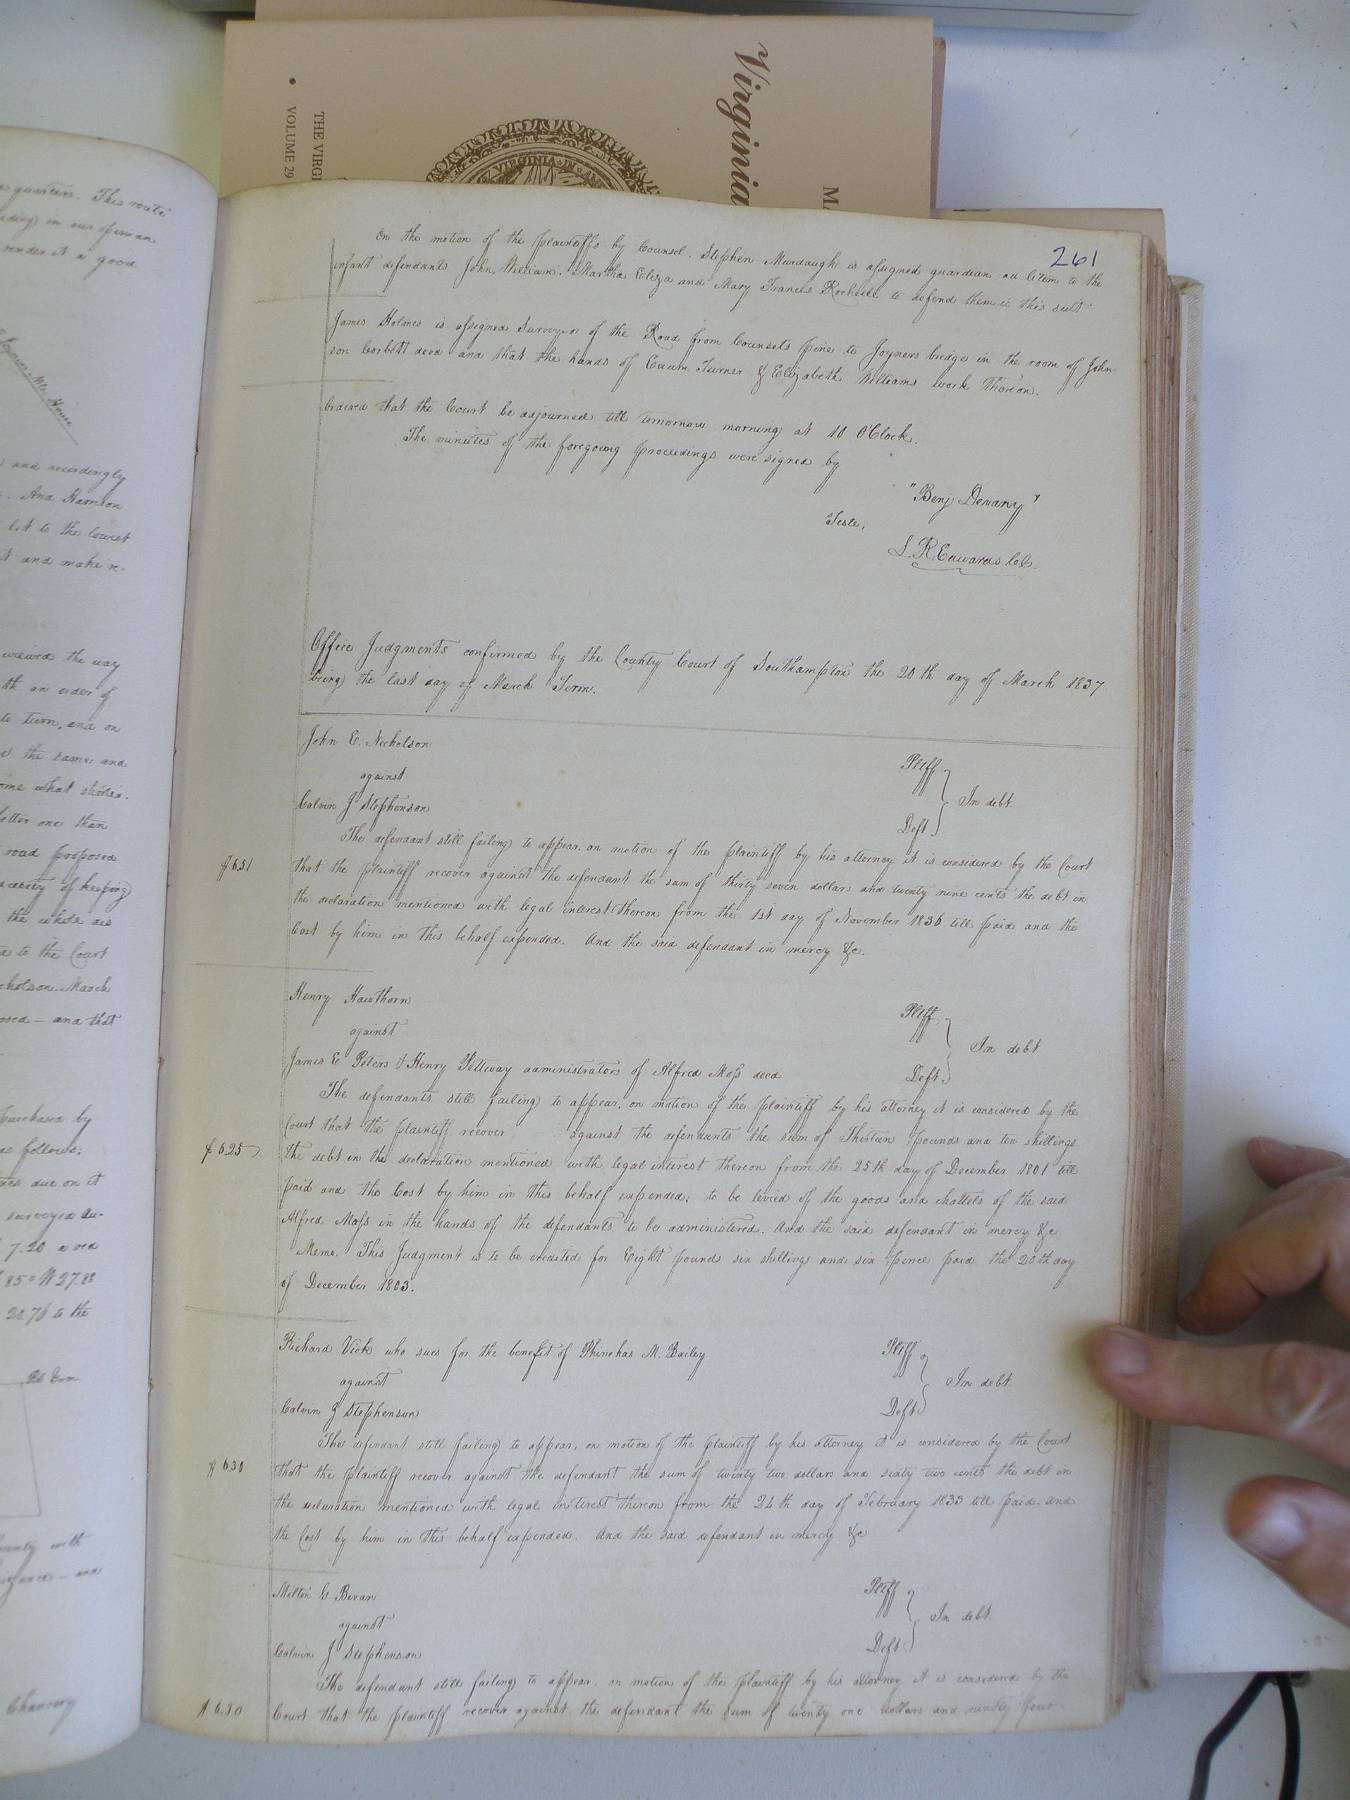 Virginia
THE VIRGI
VOLUME 29
quarters. This route
render it a good
House
and accordingly
And Harrison
let to the lowest
and make re-
viewed the way
th an order of
to turn, and on
the same and
ome what shorter.
better one than
road proposed
of keeping
the whole are
to the Court
cholson. March
osed - and that
purchased by
as follows:
due on it
surveyed
7.20
85° W 27.88
to the
Chancery
261
On the motion of the plaintiffs by Counsel. Stephen Murdaugh is assigned guardian ad litem to the
infant defendants John, William, Martha Eliza and Mary Frances Rochelle to defend them in this suit
James Holmes is assigned Surveyor of the Road from Counsels pine to Joyners bridge in the room of John-
son Corbett decd and that the hands of Exum Turner & Elizabeth Williams work thereon.
Ordered that the Court be adjourned till tomorrow morning at 10 O'Clock.
The minutes of the foregoing proceedings were signed by
"Benj Devany"
Teste,
L. R. Edwards Clk.
Office Judgments confirmed by the County Court of Southampton the 20th day of March 1837
being the last day of March Term.
John E. Nicholson Pltff
against In debt.
Calvin J Stephenson Deft
The defendant still failing to appear, on motion of the plaintiff by his attorney it is considered by the Court
$ 6.31 that the plaintiff recover against the defendant the sum of thirty seven dollars and twenty nine cents the debt in
the declaration mentioned with legal interest thereon from the 1st day of November 1836 till paid and the
Cost by him in this behalf expended. And the said defendant in mercy &c.
Henry Hawthorn Pltff
against In debt
James E Peters & Henry Pettway administrators of Alfred Moss decd Deft.
The defendants still failing to appear, on motion of the plaintiff by his attorney it is considered by the
Court that the plaintiff recover against the defendants the sum of Thirteen pounds and ten shillings
$ 6.25 the debt in the declaration mentioned with legal interest thereon from the 25th day of December 1801 till
paid and the Cost by him in this behalf expended; to be levied of the goods and chattels of the said
Alfred Moss in the hands of the defendants to be administered. And the said defendant in mercy &c
Memo. This Judgment is to be credited for Eight pounds six shillings and six pence paid the 20th day
of December 1803.
Richard Vick who sues for the benefit of Phinehas M. Bailey Pltff
against In debt.
Calvin J Stephenson Deft
The defendant still failing to appear, on motion of the plaintiff by his attorney it is considered by the Court
$ 6.30 that the plaintiff recover against the defendant the sum of twenty two dollars and sixty two cents the debt in
the declaration mentioned with legal interest thereon from the 24th day of February 1833 till paid. and
the Cost by him in this behalf expended. And the said defendant in mercy &c
Milton G. Bevan Pltff
against In debt.
Calvin J Stephenson Deft
The defendant still failing to appear. on motion of the plaintiff by his attorney it is considered by the
$ 6.30 Court that the plaintiff recover against the defendant the sum of twenty one dollars and ninety four